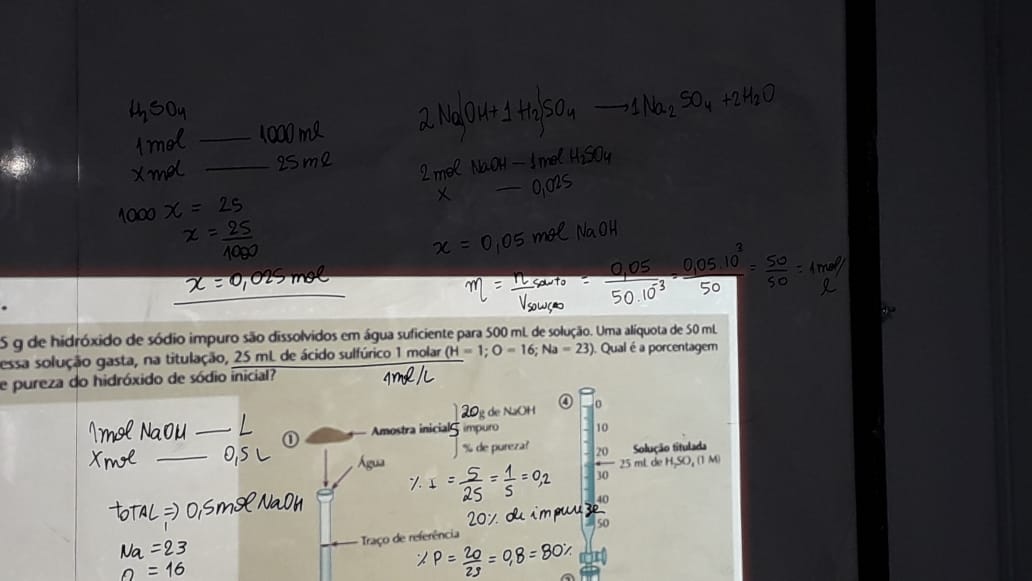 H₂SO₄
1mol —— 1000 ml
x mol —— 25 ml
1000 x = 25
x = 25/1000
x = 0,025 mol
2 Na)OH + 1 H₂)SO₄ → 1Na₂SO₄ + 2H₂O
2 mol NaOH – 1 mol H₂SO₄
x — 0,025
x = 0,05 mol NaOH
m = n soluto / V solução = 0,05 / 50.10⁻³ = 0,05.10³ / 50 = 50/50 = 1 mol/l
5 g de hidróxido de sódio impuro são dissolvidos em água suficiente para 500 mL de solução. Uma alíquota de 50 mL
essa solução gasta, na titulação, 25 mL de ácido sulfúrico 1 molar (H = 1; O = 16; Na = 23). Qual é a porcentagem
e pureza do hidróxido de sódio inicial?
1mol/L
1mol NaOH — L
x mol —— 0,5 L
TOTAL ⇒ 0,5 mol NaOH
Na = 23
O = 16
①
Amostra inicial
20g de NaOH
5 impuro
% de pureza?
Água
% I = 5/25 = 1/5 = 0,2
20% de impureze
Traço de referência
% P = 20/25 = 0,8 = 80%
④
0
10
20
30
40
50
Solução titulada
25 mL de H₂SO₄ (1 M)